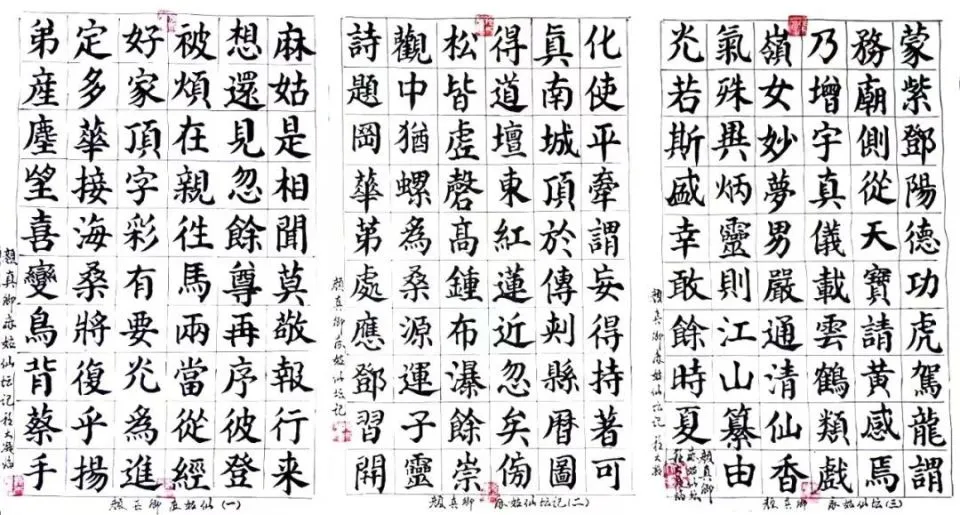 麻姑是相聞莫敬報行来
想還見忽餘尊再序彼登
被煩在親往馬兩當從經
好家頂字彩有要光為進
定多華接海桑將復乎揚
弟産塵望喜變鳥背蔡手
化使平牽謂妄得持著可
真南城頂於傳刾縣曆圖
得道壇東紅蓮近忽矣傍
松皆虛磬高鍾布瀑餘崇
觀中猶螺為桑源運子靈
詩題岡華第處應鄧習開
顏真卿麻姑仙坛記
顏真卿 麻姑仙坛記(二)
蒙紫鄧陽德功虎駕龍謂
務廟側從天寶請黃感焉
乃增宇真儀載雲鶴類戲
嶺女妙夢男嚴通清仙香
氣殊異炳靈則江山纂由
光若斯盛幸敢餘時夏
顏真卿 麻姑仙坛(三)